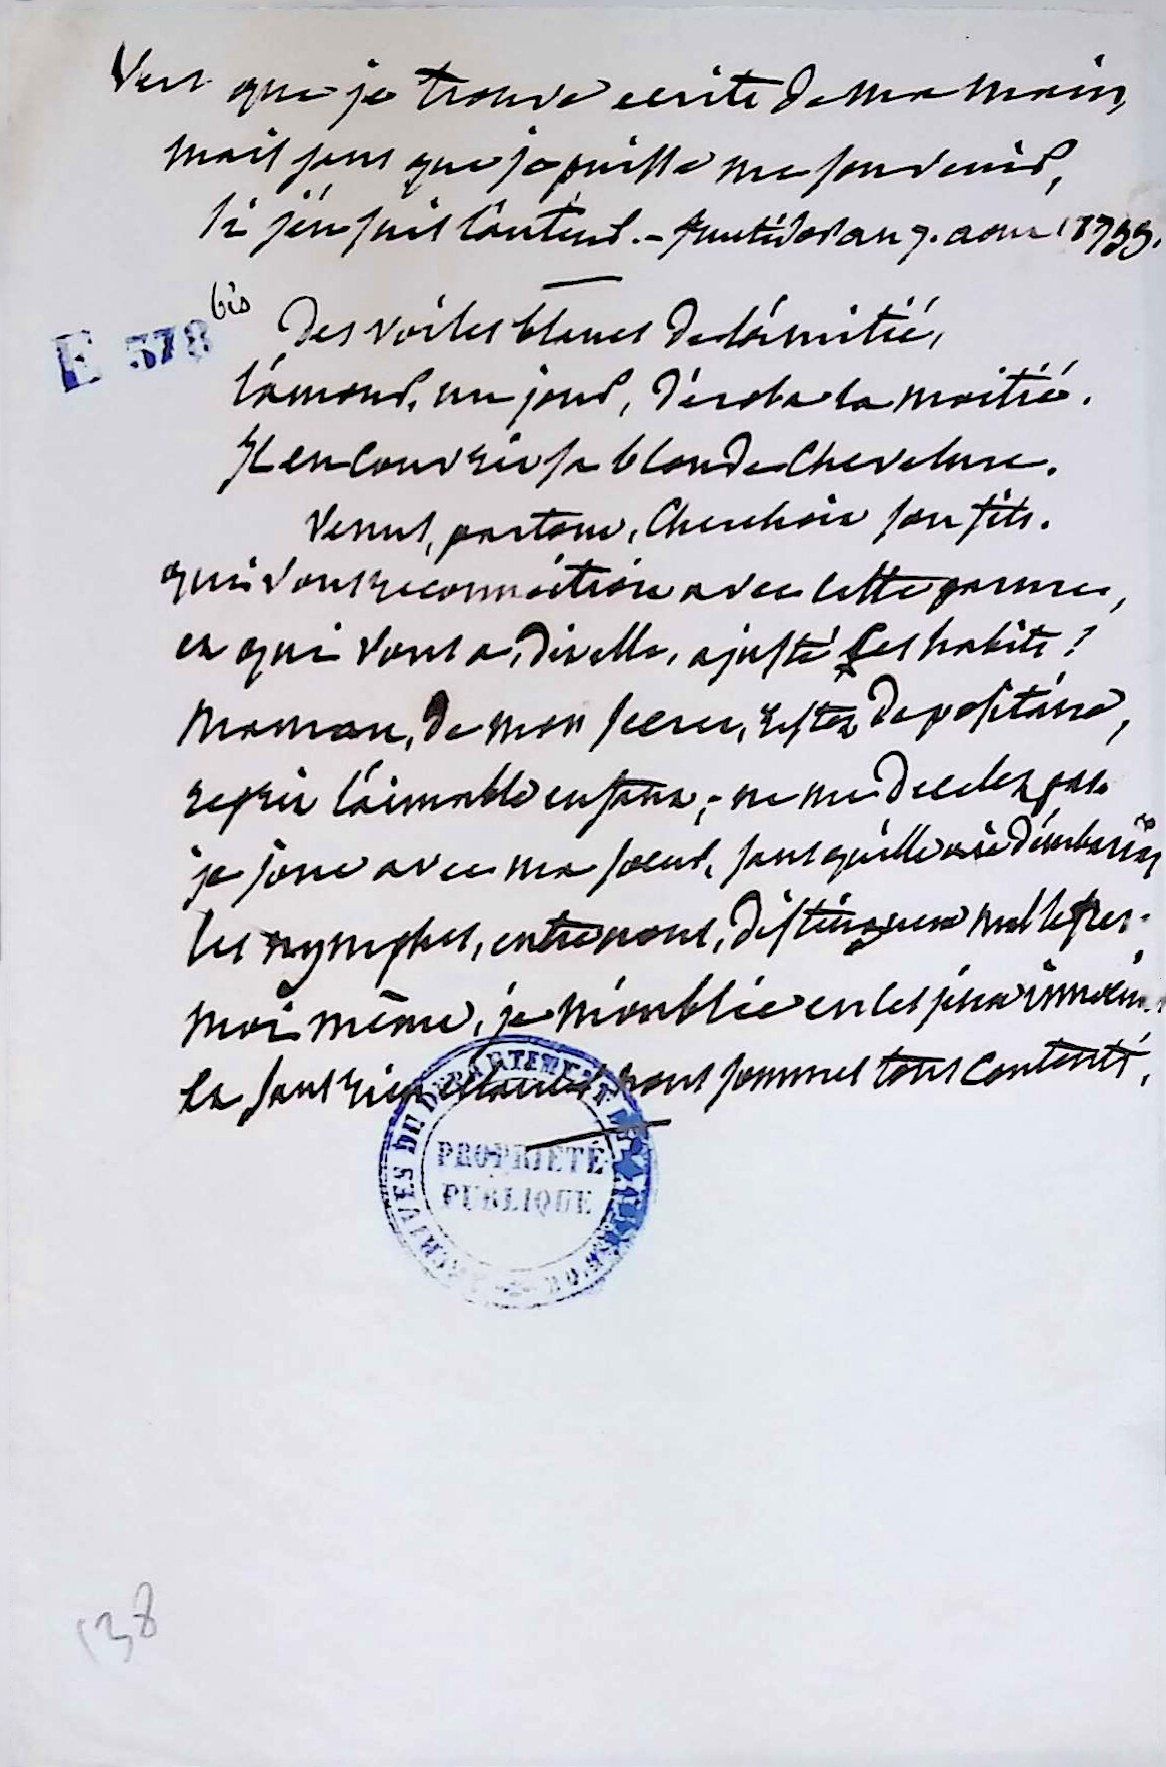 Vers que je trouve ecrits de ma main,
mais sans que je puisse me souvenir,
si j'en suis l'auteur. - fructidor an 7. aout 1799.
E 378 bis
Des voiles blancs de l'amitié,
l'amour, un jour, déroba la moitié.
Il en couvrit sa blonde chevelure.
Venus, partout, cherchoit son fils.
qui vous reconnoitroit avec cette parure,
et qui vous a, dit elle, ajusté ces habits?
Maman, de mon secret, restez depositaire,
reprit l'aimable enfant; ne me decelez pas.
je joue avec ma soeur, sans qu'elle ait d'embarras
les nymphes, entre nous, distinguent mal le frere.
moi même, je m'oublie en ces jeux innocens.
et sans rien nous sommes tous contents.
ARCHIVES DU DÉPARTEMENT
PROPRIÉTÉ
PUBLIQUE
138